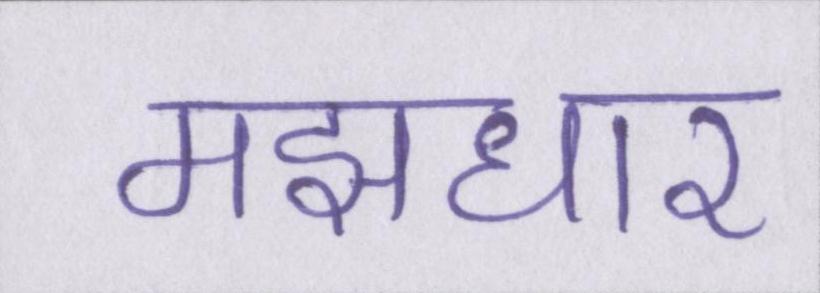 मझधार